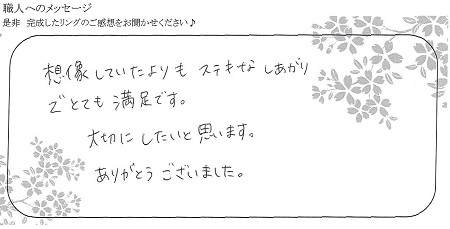 職人へのメッセージ
是非 完成したリングのご感想をお聞かせください♪
想像していたよりも ステキな しあがり
でとても満足です。
大切に したいと思います。
ありがとうございました。